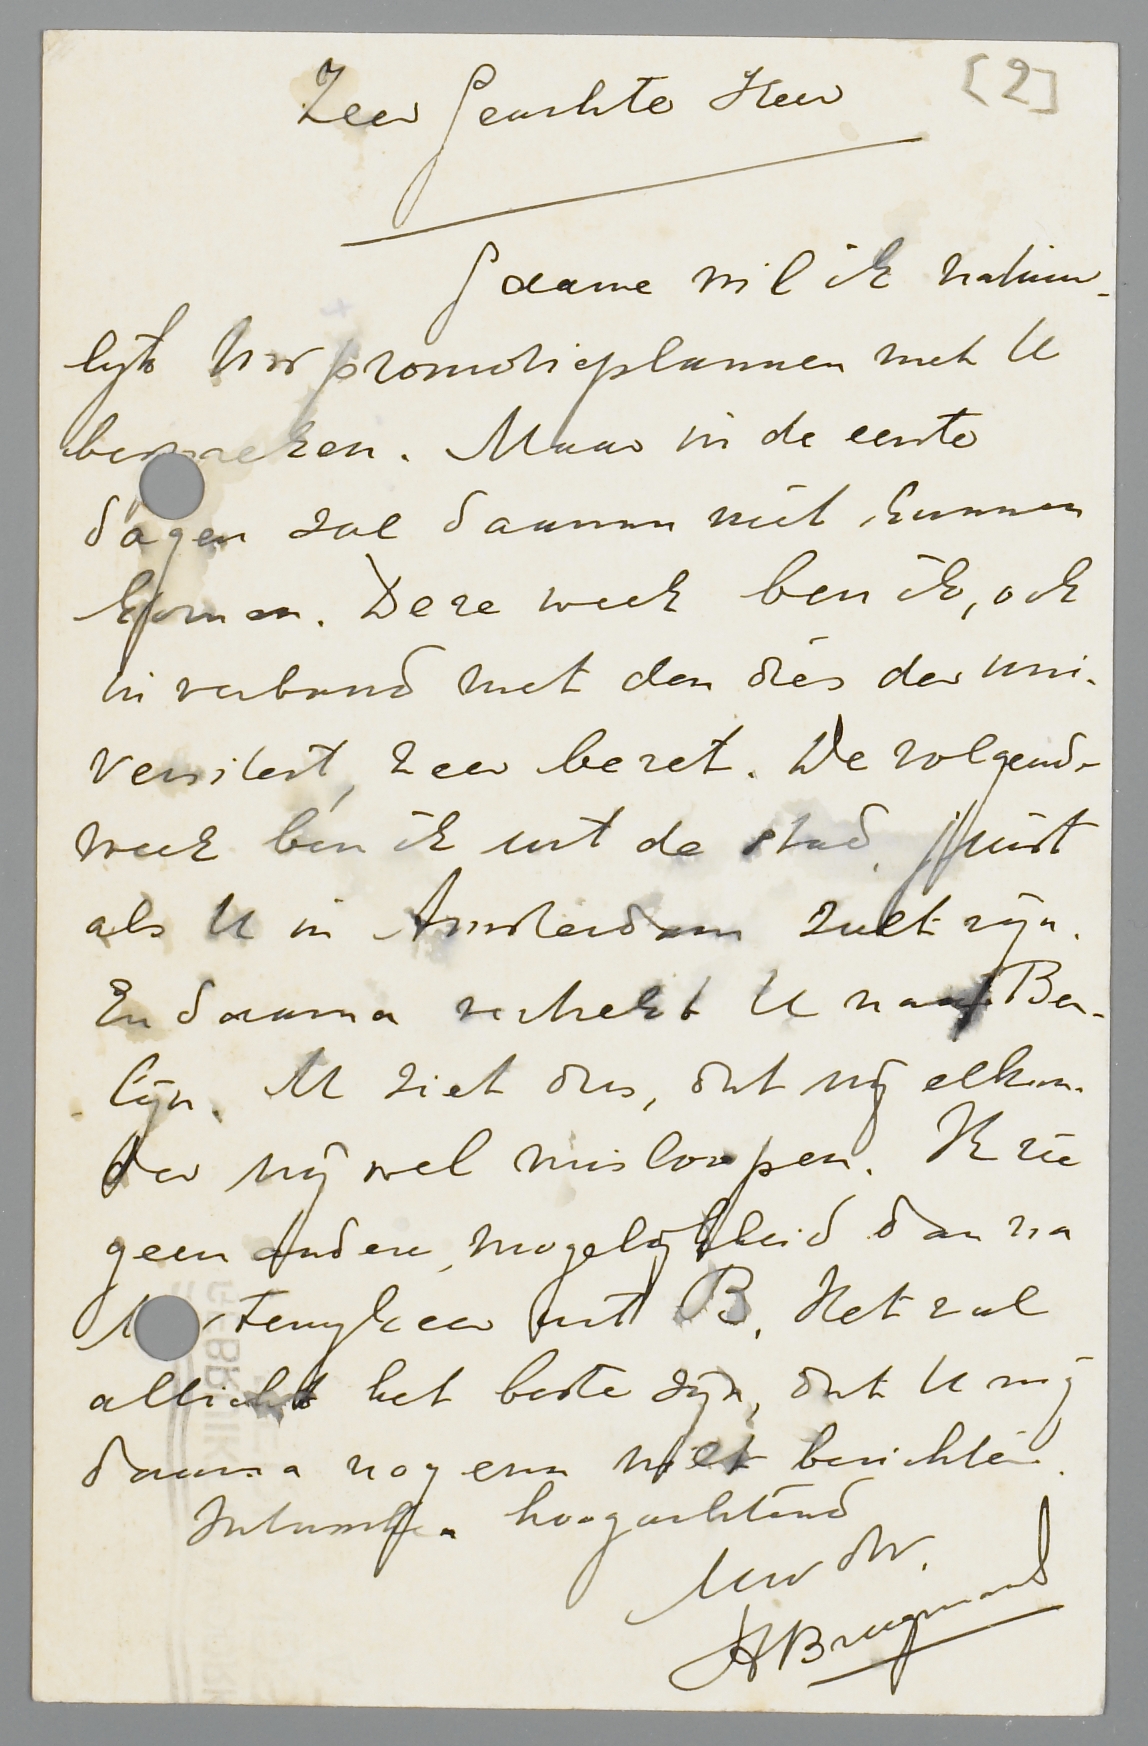 [2]
Zeer Geachte Heer
Gaarne wil ik natuur-
lijk Uw promotieplannen met U
bespreken. Maar in de eerste
dagen zal daarvan niet kunnen
komen. Deze week ben ik, ook
in verband met den dies der uni-
versiteit, zeer bezet. De volgende
week ben ik uit de stad, juist
als U in Amsterdam zult zijn.
En daarna vertrekt U naar Ber-
lijn. U ziet dus, dat wij elkan-
der vrij wel misloopen. Ik zie
geen andere mogelijkheid dan na
terugkeer uit B. Het zal
allicht het beste zijn, dat U mij
daarna nog even wilt berichten.
Intusschen hoogachtend
Uw dw.
HBrugmans